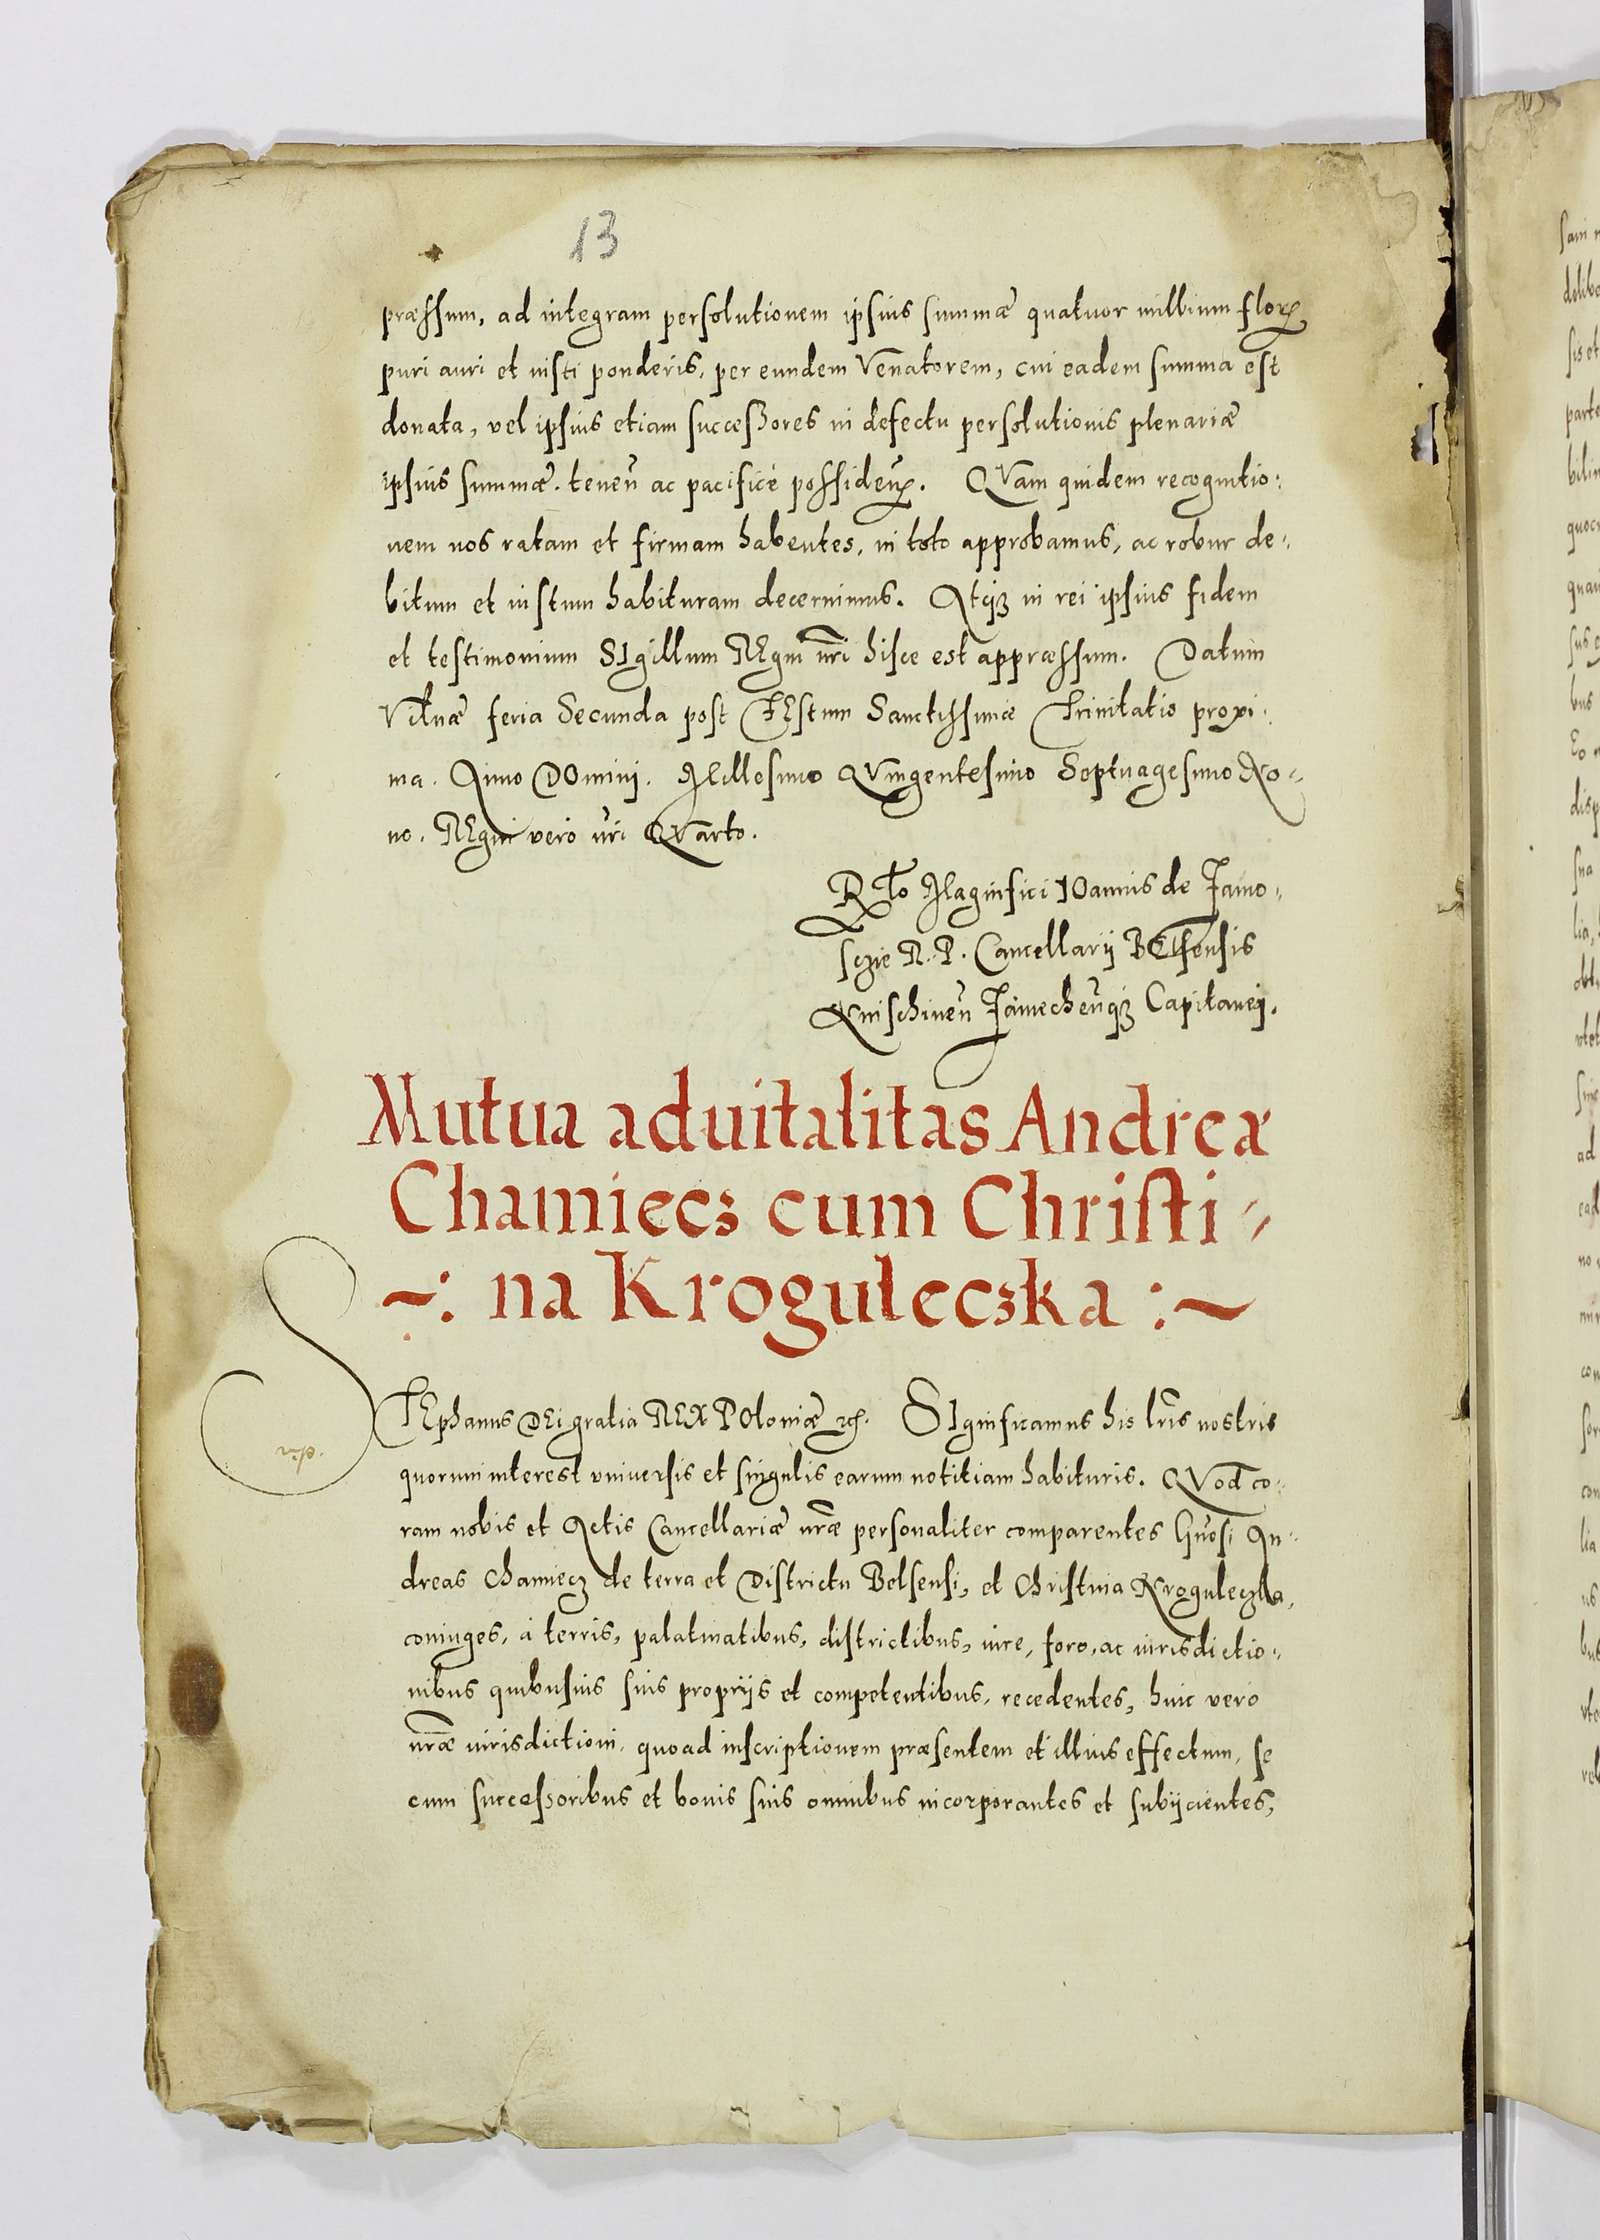 13
præssum, ad integram persolutionem ipsius summæ quatuor millium florꝝ
puri auri et iusti ponderis, per eundem Venatorem, cui eadem summa est
donata, vel ipsius etiam successores in defectu persolutionis plenariæ
ipsius summæ. teneñ ac pacificè possideñ. QVam quidem recognitio:
nem nos ratam et firmam habentes, in toto approbamus, ac robur de:
bitum et iustum habituram decernimus. Atqꝫ in rei ipsius fidem
et testimonium SIgillum REgni nr̃i hisce est appræssum. Datum
Vilnæ feria Secunda post FEstum Sanctissimæ Trinitatis proxi:
ma. Anno DOmini. Millesimo QVingentesimo Septuagesimo No:
no. REgni vero nr̃i QVarto.
Rl̃o Magnifici IOannis de Zamo:
sczie R. P. Cancellarij BElsensis
Knischineñ Zamecheñqꝫ Capitanej.
Mutua aduitalitas Andreæ
Chamiecz cum Christi
~: na Kroguleczka :~
STEphanus DEi gratia REX POloniæ ꝛc̃. SIgnificamus his lr̃is nostris
quorum interest vniuersis et singulis earum notitiam habituris. QVod co:
ram nobis et Actis Cancellariæ nr̃æ personaliter comparentes Gñosi An:
dreas Chamiecz de terra et Districtu Belsensi, et Christina Kroguleczka,
coniuges, à terris, palatinatibus, districtibus, iure, foro, ac iurisdictio:
nibus quibusuis suis proprijs et competentibus, recedentes, huic vero
nr̃æ iurisdictioni, quoad inscriptionem præsentem et illius effectum, se
cum successoribus et bonis suis omnibus incorporantes et subijcientes,